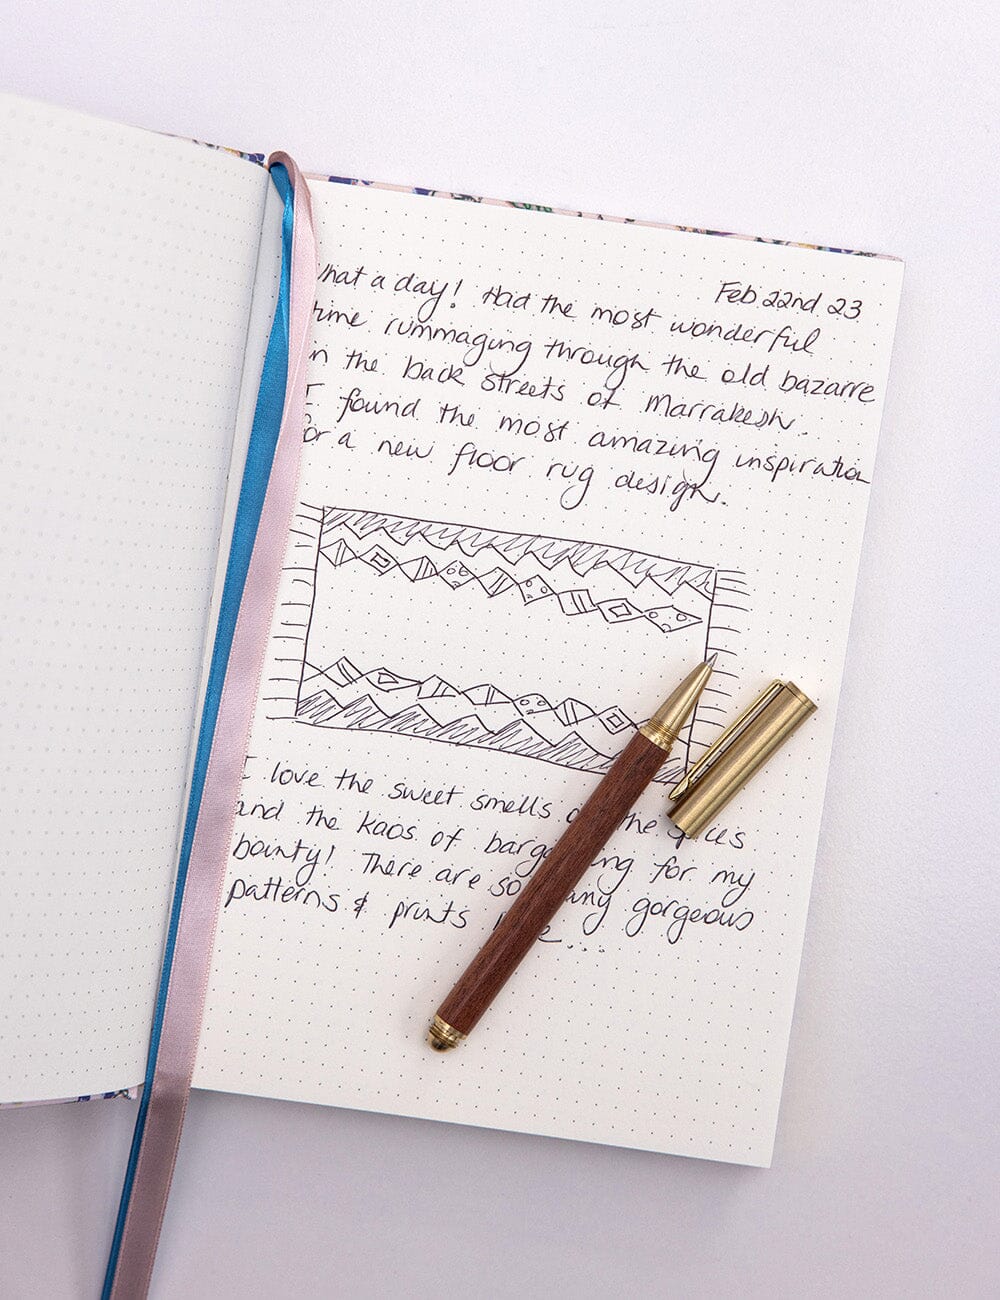 Feb 22nd 23
hat a day! Had the most wonderful
time rummaging through the old bazarre
in the back streets of Marrakesh.
I found the most amazing inspiration
for a new floor rug design.
I love the sweet smells the spices
and the kaos of for my
bounty! There are so gorgeous
patterns & prints